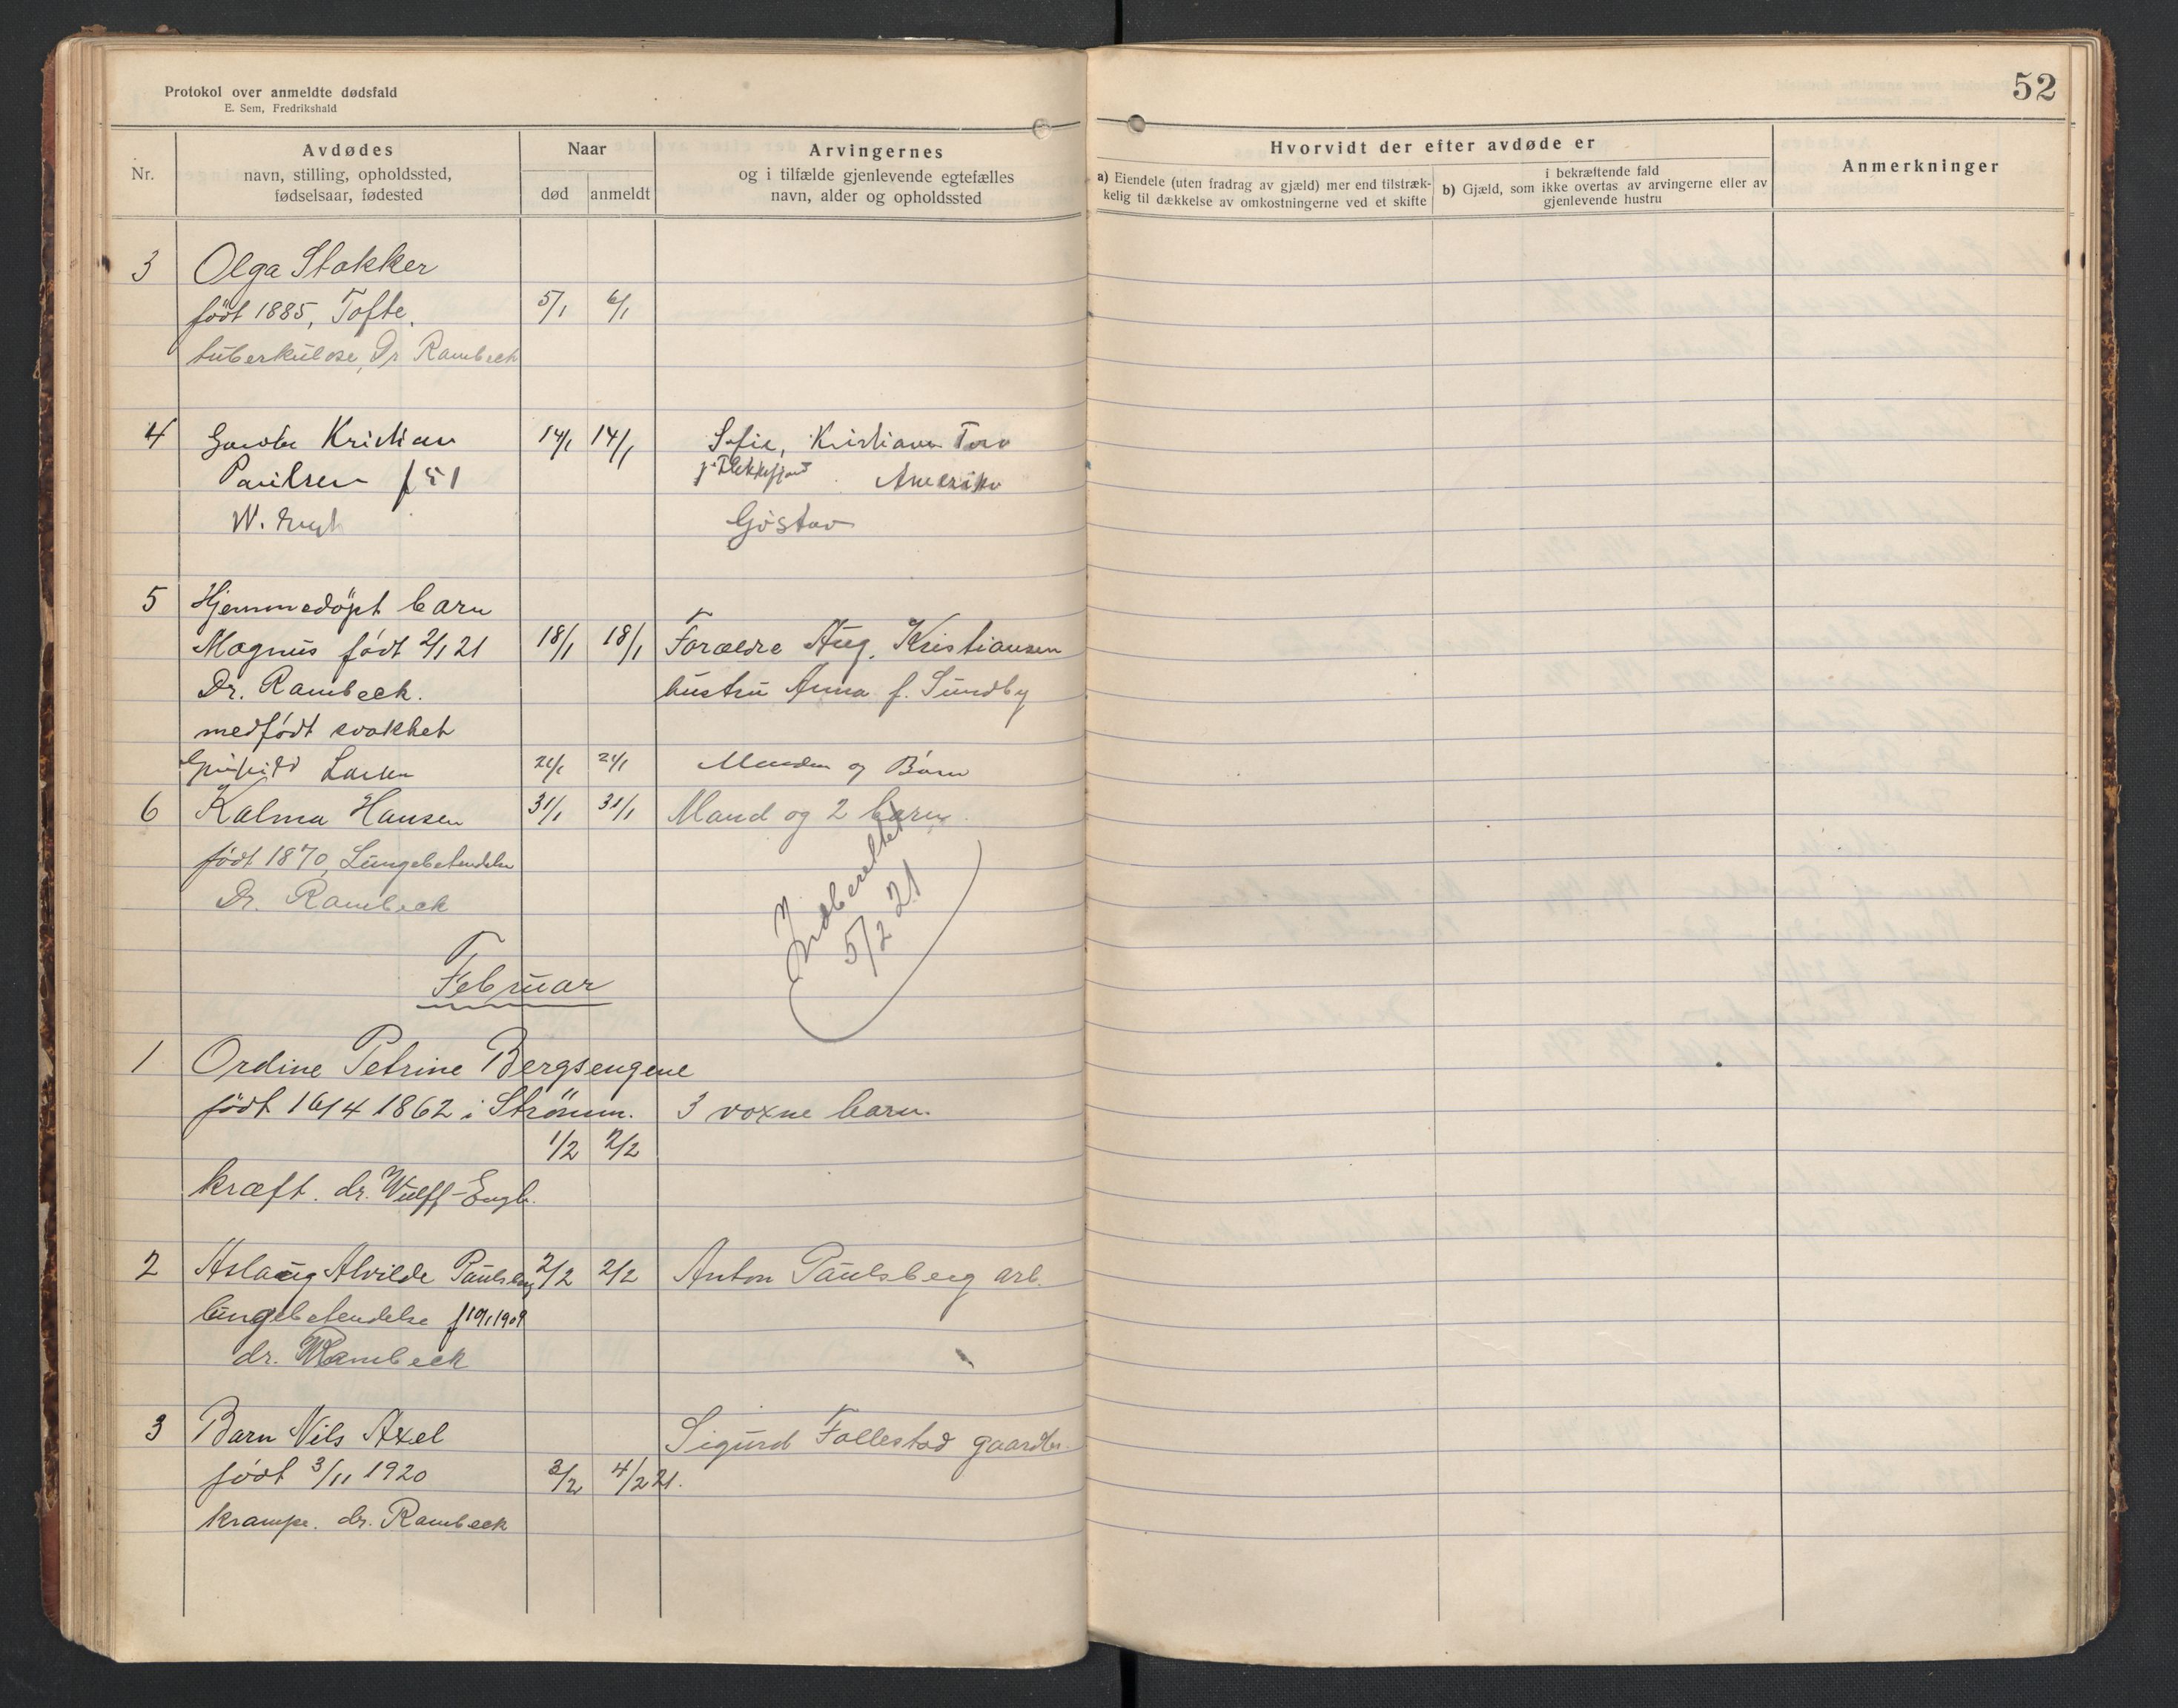 Protokol over anmeldte dødsfald
E. Sem, Fredrikshald
52
Nr.
Avdødes
navn, stilling, opholdssted,
fødselsaar, fødested
Naar
død anmeldt
Arvingernes
og i tilfælde gjenlevende egtefælles
navn, alder og opholdssted
Hvorvidt der efter avdøde er
a) Eiendele (uten fradrag av gjæld) mer end tilstræk-
kelig til dækkelse av omkostningerne ved et skifte
i bekræftende fald
b) Gjæld, som ikke overtas av arvingerne eller av
gjenlevende hustru
Anmerkninger
3 Olga Stokker
født 1885, Tofte. 5/1 6/1
tuberkulose, Dr Rambeck
4 Kristian 14/1 14/1 Sofie, Kristiane
Paulsen f 51 Flekkefjord Amerika
W. Gustav
5 Hjemmedøpt barn
Magnus født 2/1 21 18/1 18/1 Forældre Aug. Kristiansen
Dr. Rambeck. hustru Anna f. Sundby
medfødt svakhet
Larsen Manden og Børn
6 Kalma Hansen 31/1 31/1 Mand og 2 barn.
født 1870, Lungebetendelse
Dr. Rambeck
Indberettet
5/2 21
Februar
1 Ordine Petrine Bergsengene
født 16/4 1862 i Strømm. 3 voxne barn.
1/2 2/2
kræft. dr. Wulff-Engh.
2 Aslaug Alvilde Paulsberg 2/2 2/2 Anton Paulsberg arb.
lungebetendelse 1909
dr. Rambeck
3 Barn Nils Axel Sigurd Follestad gaardbr.
født 3/11 1920 3/2 4/2 21.
krampe. dr. Rambeck